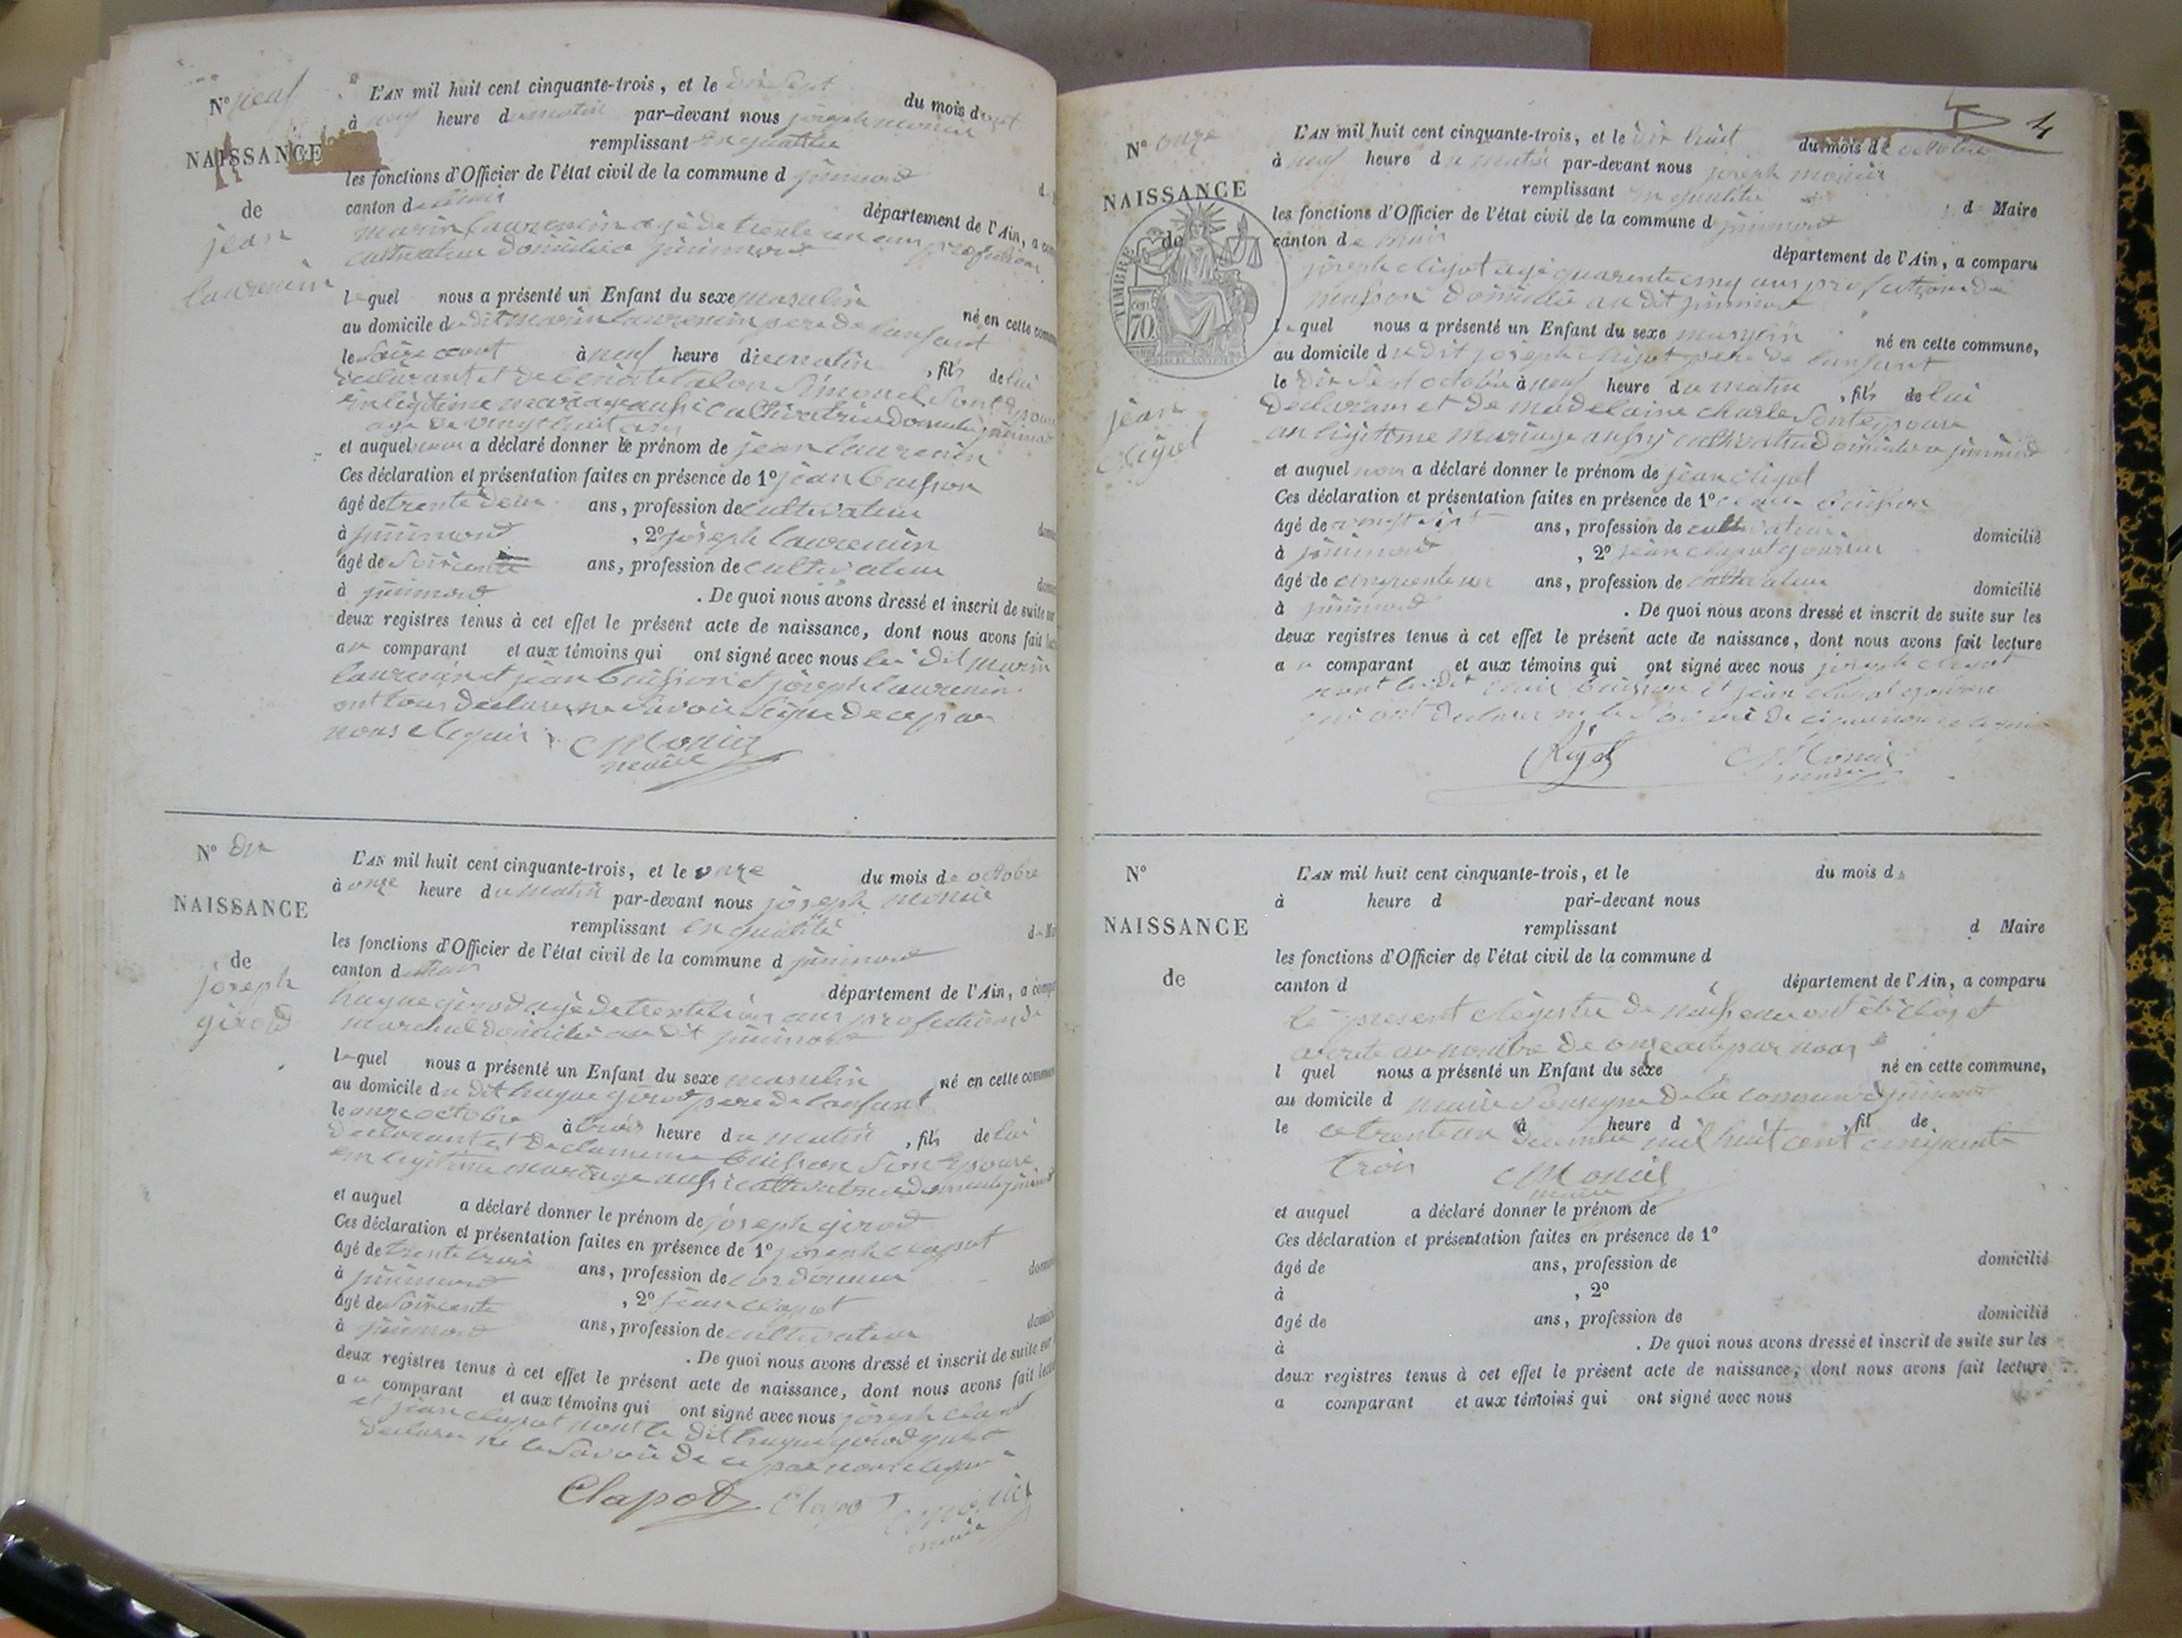 N° neuf
NAISSANCE
de
jean
laurencin
L'AN mil huit cent cinquante-trois, et le dix sept du mois d
à neuf heure du matin par-devant nous joseph monier
remplissant en qualitée
les fonctions d'Officier de l'état civil de la commune d
canton d département de l'Ain, a
marin laurencin agé de trente un ans profetion
cultivateur domicilié a
lequel nous a présenté un Enfant du sexe masculin né en cette
au domicile du dit marin laurencin pere de lenfant
le à neuf heure du matin, fils de lui
declarant et de son epouse
en legitime mariage aussi cultivatrice
age de vingt huit ans
et auquel nous a déclaré donner le prénom de jean laurencin
Ces déclaration et présentation faites en présence de 1° jean buisson
âgé de trente deux ans, profession de cultivateur
à , 2° joseph laurencin
âgé de Soixante ans, profession de cultivateur
à . De quoi nous avons dressé et inscrit de suite sur
deux registres tenus à cet effet le présent acte de naissance, dont nous avons fait
au comparant et aux témoins qui ont signé avec nous le dit marin
laurencin et jean buisson et joseph laurencin
ont tous declarer ne savoir signe de ce par
nous
Monier
maire
N° dix
NAISSANCE
de
joseph
girod
L'AN mil huit cent cinquante-trois, et le onze du mois de octobre
à onze heure du matin par-devant nous joseph monier
remplissant en qualité d
les fonctions d'Officier de l'état civil de la commune d
canton d département de l'Ain, a
hugue girod agé de trente ans profetion de
domicilié au dit
lequel nous a présenté un Enfant du sexe masculin né en cette
au domicile du dit hugue girod pere de lenfant
le onze octobre à trois heure du matin, fils de lui
declarant et de buisson son epouse
en legitime mariage aussi cultivatrice
et auquel a déclaré donner le prénom de joseph girod
Ces déclaration et présentation faites en présence de 1° joseph clapot
âgé de trente trois ans, profession de cordonnier
à , 2° jean clapot
âgé de Soixante ans, profession de cultivateur
à . De quoi nous avons dressé et inscrit de suite sur
deux registres tenus à cet effet le présent acte de naissance, dont nous avons fait
au comparant et aux témoins qui ont signé avec nous joseph clapot
et jean clapot nont le dit hugue girod qui a
declarer ne le savoir de ce par nous
Clapot Clapot Monier
maire
4
N° onze
NAISSANCE
de
TIMBRE
70
jean
L'AN mil huit cent cinquante-trois, et le dix huit du mois de octobre
à neuf heure du matin par-devant nous joseph monier
remplissant en qualité d Maire
les fonctions d'Officier de l'état civil de la commune d
canton d département de l'Ain, a comparu
joseph agé quarente cinq ans profetion de
masson domicilié au dit
lequel nous a présenté un Enfant du sexe né en cette commune,
au domicile du dit joseph pere de lenfant
le dix sept octobre à neuf heure du matin, fils de lui
declarant et de madelaine charle son epouse
en legitime mariage aussy cultivatrice domiciliée a
et auquel nous a déclaré donner le prénom de jean
Ces déclaration et présentation faites en présence de 1° buisson
âgé de vingt sept ans, profession de cultivateur domicilié
à , 2° jean clapot
âgé de cinquante un ans, profession de cultivateur domicilié
à . De quoi nous avons dressé et inscrit de suite sur les
deux registres tenus à cet effet le présent acte de naissance, dont nous avons fait lecture
au comparant et aux témoins qui ont signé avec nous joseph
nont le dit buisson et jean clapot
qui ont declarer ne le savoir de ce
Monier
maire
N°
NAISSANCE
de
L'AN mil huit cent cinquante-trois, et le du mois d
à heure d par-devant nous
remplissant d Maire
les fonctions d'Officier de l'état civil de la commune d
canton d département de l'Ain, a comparu
le present Registre de naissence ont été clos et
arrete au nombre de onze acte par nous
l quel nous a présenté un Enfant du sexe né en cette commune,
au domicile d maire Sousigne de la commune
le à heure d , fil de
ce trente un decembre mil huit cent cinquante
trois
Monier
maire
et auquel a déclaré donner le prénom de
Ces déclaration et présentation faites en présence de 1°
âgé de ans, profession de domicilié
à , 2°
âgé de ans, profession de domicilié
à . De quoi nous avons dressé et inscrit de suite sur les
deux registres tenus à cet effet le présent acte de naissance, dont nous avons fait lecture
a comparant et aux témoins qui ont signé avec nous